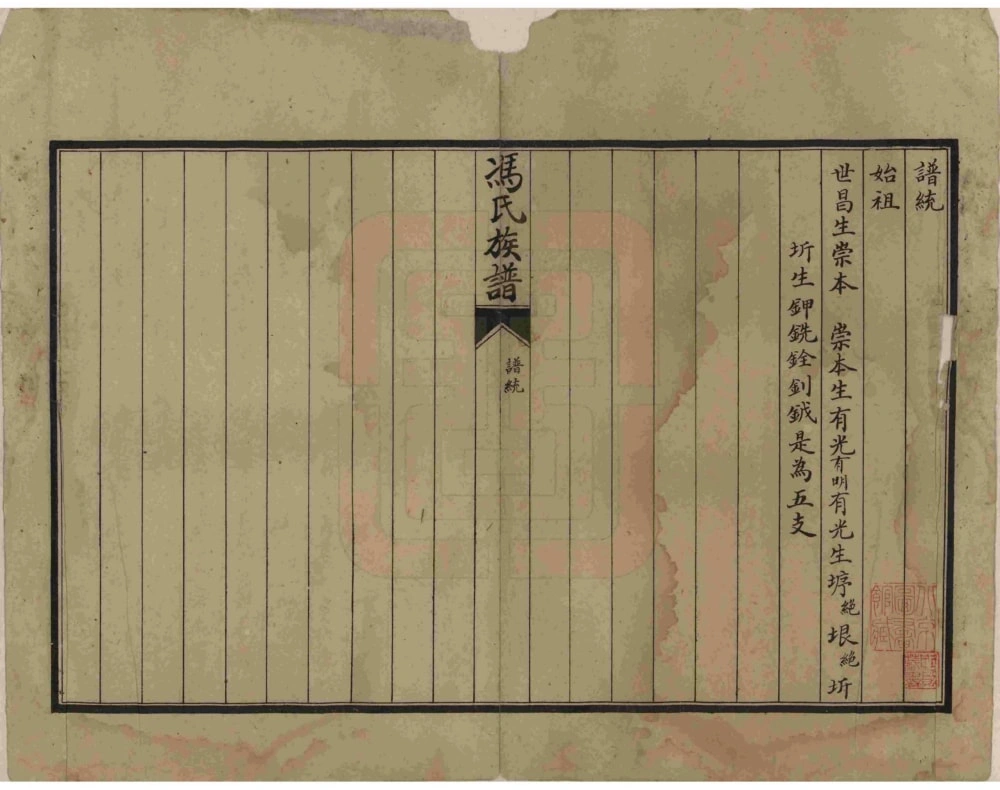 譜統
始祖
世昌生崇本　崇本生有光有明有光生垿絕垠絕圻
圻生鉀銑銓釗鉞是為五支
馮氏族譜
譜統